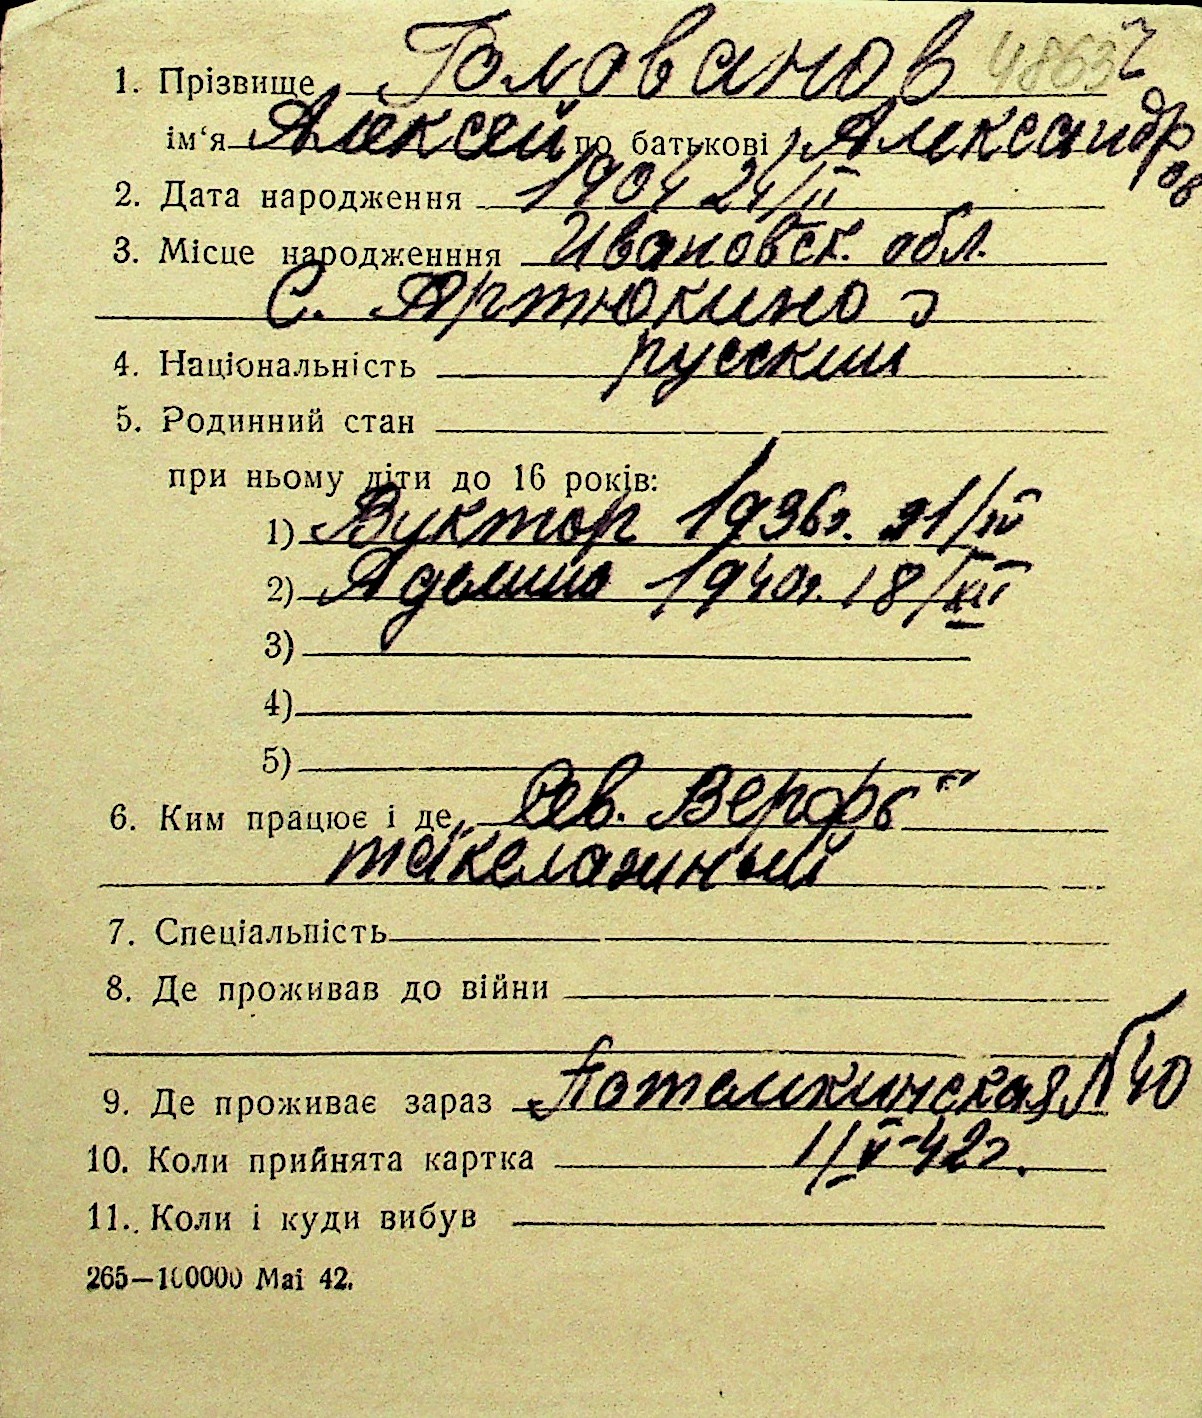 1. Прізвище Голованов 4863 ч
ім‘я Алексей по батькові Александр
ов
2. Дата народження 1904 24/II
3. Місце народженння Ивановск. обл.
С. Артюкино
4. Національність русский
5. Родинний стан
при ньому діти до 16 років:
1) Вуктор 1936г. 21/IV
2) Аделина 1940г. 18/XII
3)
4)
5)
6. Ким працює і де „Сев. Верфь“
такелажный
7. Спеціальність
8. Де проживав до війни
9. Де проживає зараз Потемкинская № 40
10. Коли прийнята картка 1/V-42г.
11. Коли і куди вибув
265—100000 Mai 42.